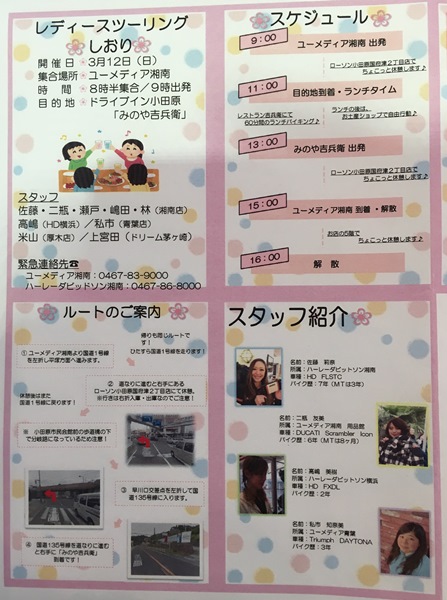 レディースツーリング
しおり
開催日 3月12日（日）
集合場所 ユーメディア湘南
時間 8時半集合／9時出発
目的地 ドライブイン小田原
「みのや吉兵衛」
スタッフ
佐藤・二瓶・瀬戸・嶋田・林（湘南店）
高嶋（HD横浜）／私市（青葉店）
米山（厚木店）／上宮田（ドリーム茅ヶ崎）
緊急連絡先☎
ユーメディア湘南：0467-83-9000
ハーレーダビッドソン湘南：0467-86-8000
スケジュール
9：00
ユーメディア湘南 出発
ローソン小田原国府津２丁目店で
ちょこっと休憩します♪
11：00
目的地到着・ランチタイム
レストラン吉兵衛にて
60分間のランチバイキング♪
ランチの後は、
お土産ショップで自由行動♪
13：00
みのや吉兵衛 出発
ローソン小田原国府津２丁目店で
ちょこっと休憩します♪
15：00
ユーメディア湘南 到着・解散
お店の5階で
ちょこっと休憩します♪
16：00
解 散
ルートのご案内
帰りも同じルートです！
ひたすら国道1号線を走ります！
① ユーメディア湘南より国道1号線
を左折し平塚方面へ進みます。
② 道なりに進むと右手にある
ローソン小田原国府津2丁目店にて休憩。
※行きは右折入庫・出庫なのでご注意！
休憩後はまた
国道1号線に戻ります！
※ 小田原市民会館前の歩道橋の下
で分岐路になっているため注意！
③ 早川口交差点を左折して国
道135号線に入ります。
④ 国道135号線を道なりに進む
と右手に「みのや吉兵衛」
到着です！
スタッフ紹介
名前：佐藤 莉奈
所属：ハーレーダビッドソン湘南
車種：HD FLSTC
バイク歴：7年（MTは3年）
名前：二瓶 友美
所属：ユーメディア湘南 用品館
車種：DUCATI Scrambler Icon
バイク歴：6年（MTは8ヶ月）
名前：高嶋 美樹
所属：ハーレーダビッドソン横浜
車種：HD FXDL
バイク歴：2年
名前：私市 知奈美
所属：ユーメディア青葉
車種：Triumph DAYTONA
バイク歴：3年